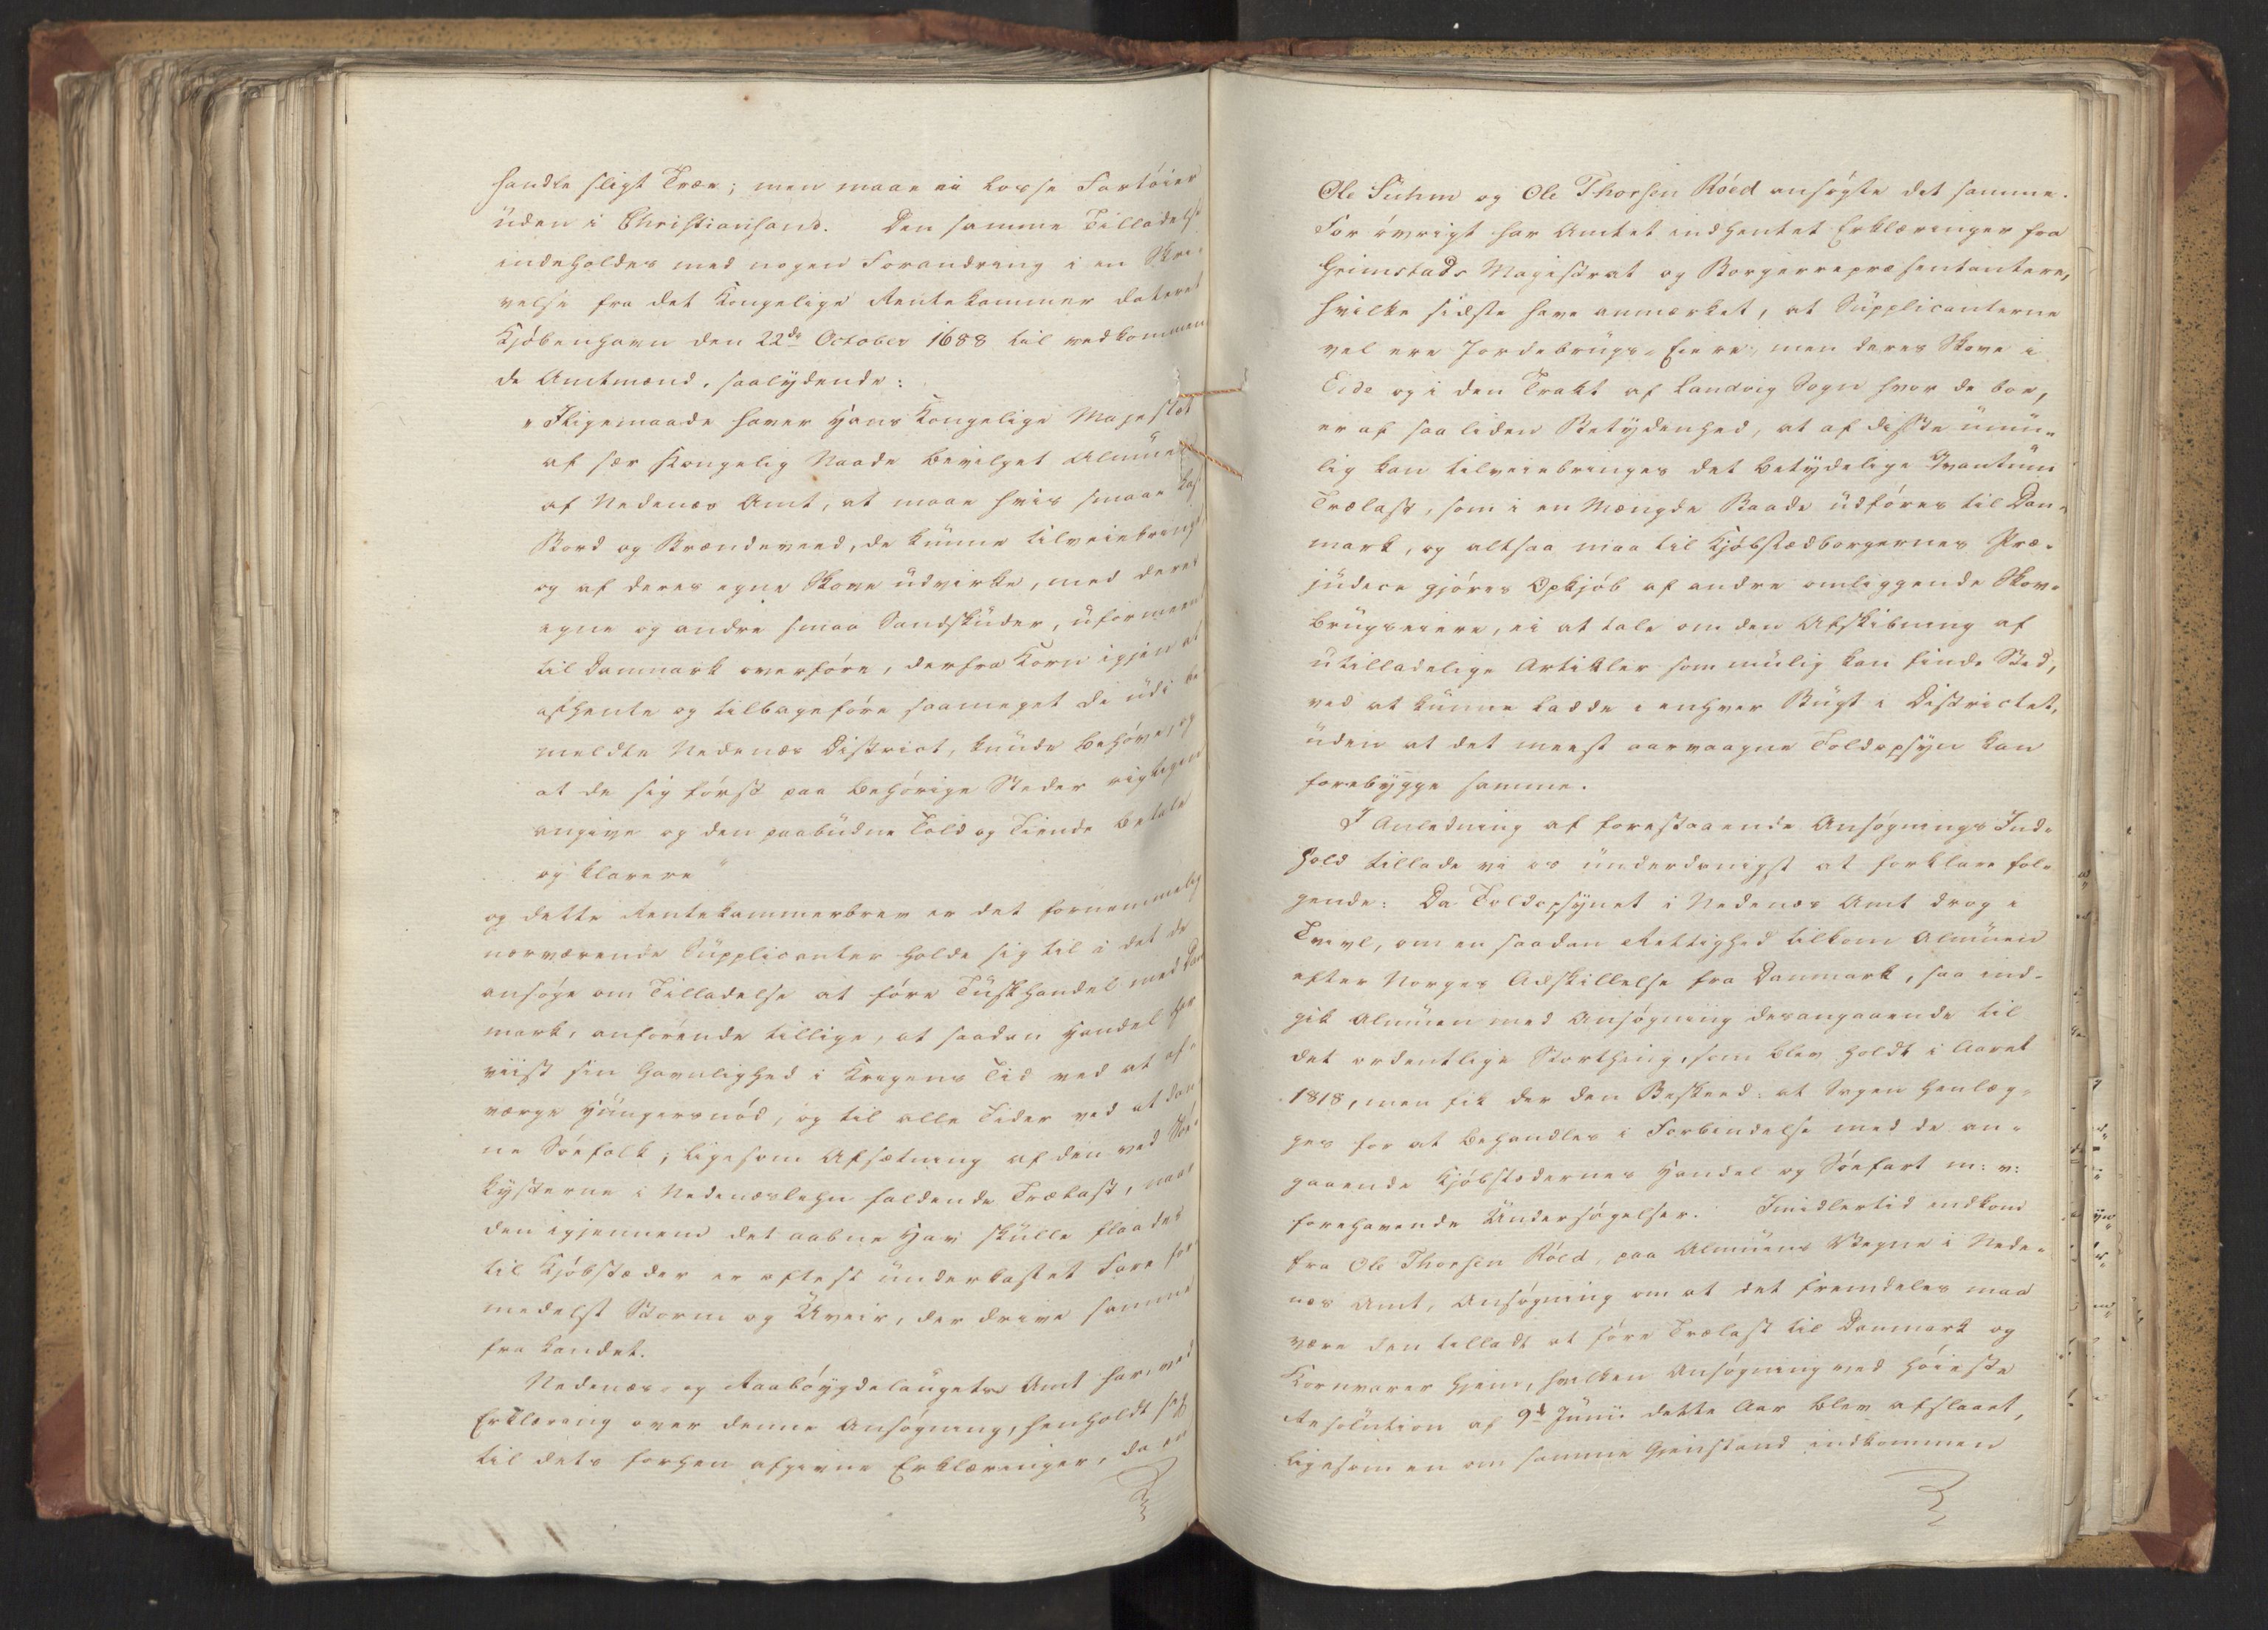 handle sligt Træe; men maae ei losse Fartøier
uden i Christiansand. Den samme Tilladelse
indeholdes med nogen Forandring i en Skri-
velse fra det Kongelige Rentekammer dateret
Kjøbenhavn den 22de October 1688 til vedkommen
de Amtmænd, saalydende:
"Iligemaade haver Hans Kongelige Majestæt
af sær Kongelig Naade bevilget Almuen
af Nedenæs Amt, at maae hvis smaae Last
Bord og Brændeveed, de kunne tilveiebringe
og af deres egne Skove udvirke, med deres
egne og andre smaa Sandskuder, uformeent
til Danmark overføre, derfra Korn igjen at
afhente og tilbageføre saameget de udi be-
meldte Nedenæs District, kunde behøve, og
at de sig først paa behørige Steder rigtigen
angive og den paabudne Told og Tiende betale
og klarere"
og dette Rentekammerbrev er det fornemmelig
nærværende Supplicanter holde sig til i det de
ansøge om Tilladelse at føre Tuskhandel med Dan
mark, anførende tillige, at saadan Handel har
viist sin Gavnlighed i Krigens Tid ved at af-
værge Hungersnød, og til alle Tider ved at dan
ne Søefolk; ligesom Afsætning af den ved Søe-
kysterne i Nedenæslehn faldende Trælast, naar
den igjennem det aabne Hav skulle flaades
til Kjøbstæder er oftest underkastet Fare for
medelst Storm og Uveir, der drive samme
fra Landet.
Nedenæs- og Raabøygdelaugets Amt har, ved
Erklæring over denne Ansøgning, henholdt sig
til dets forhen afgivne Erklæringer, da en
Ole Suhm og Ole Thorsen Røed ansøgte det samme.
For øvrigt har Amtet indhentet Erklæringer fra
Grimstads Magistrat og Borgerrepræsentantere,
hvilke sidste have anmærket, at Supplicanterne
vel ere Jordebrugs-Eiere, men deres Skove i
Eide og i den Trakt af Landvig Sogn hvor de boe,
er af saa liden Betydenhed, at af disse umu-
lig kan tilveiebringes det betydelige Qvantum
Trælast, som i en Mængde Baade udføres til Dan-
mark, og altsaa maa til Kjøbstædborgernes Præ-
judice gjøres Opkjøb af andre omliggende Skov-
brugseiere, ei at tale om den Afskibning af
utilladelige Artikler som mulig kan finde Sted,
ved at kunne ladde i enhver Bugt i Districtet,
uden at det meest aarvaagne Toldopsyn kan
forebygge samme.
I Anledning af forestaaende Ansøgnings Ind-
hold tillade vi os underdanigst at forklare føl-
gende: Da Toldopsynet i Nedenæs Amt drog i
Tvivl, om en saadan Rettighed tilkom Almuen
efter Norges Adskillelse fra Danmark, saa ind-
gik Almuen med Ansøgning desangaaende til
det ordentlige Storthing, som blev holdt i Aaret
1818, men fik der den Beskeed: at Sagen henlæg-
ges for at behandles i Forbindelse med de an-
gaaende Kjøbstædernes Handel og Søefart m: v:
forehavende Undersøgelser. Imidlertid indkom
fra Ole Thorsen Røed, paa Almuens Vegne i Nede-
næs Amt, Ansøgning om at det fremdeles maa
være den tilladt at føre Trælast til Danmark og
Kornvarer hjem, hvilken Ansøgning ved høieste
Resolution af 9de Junii dette Aar blev afslaaet,
ligesom en om samme Gjenstand indkommen